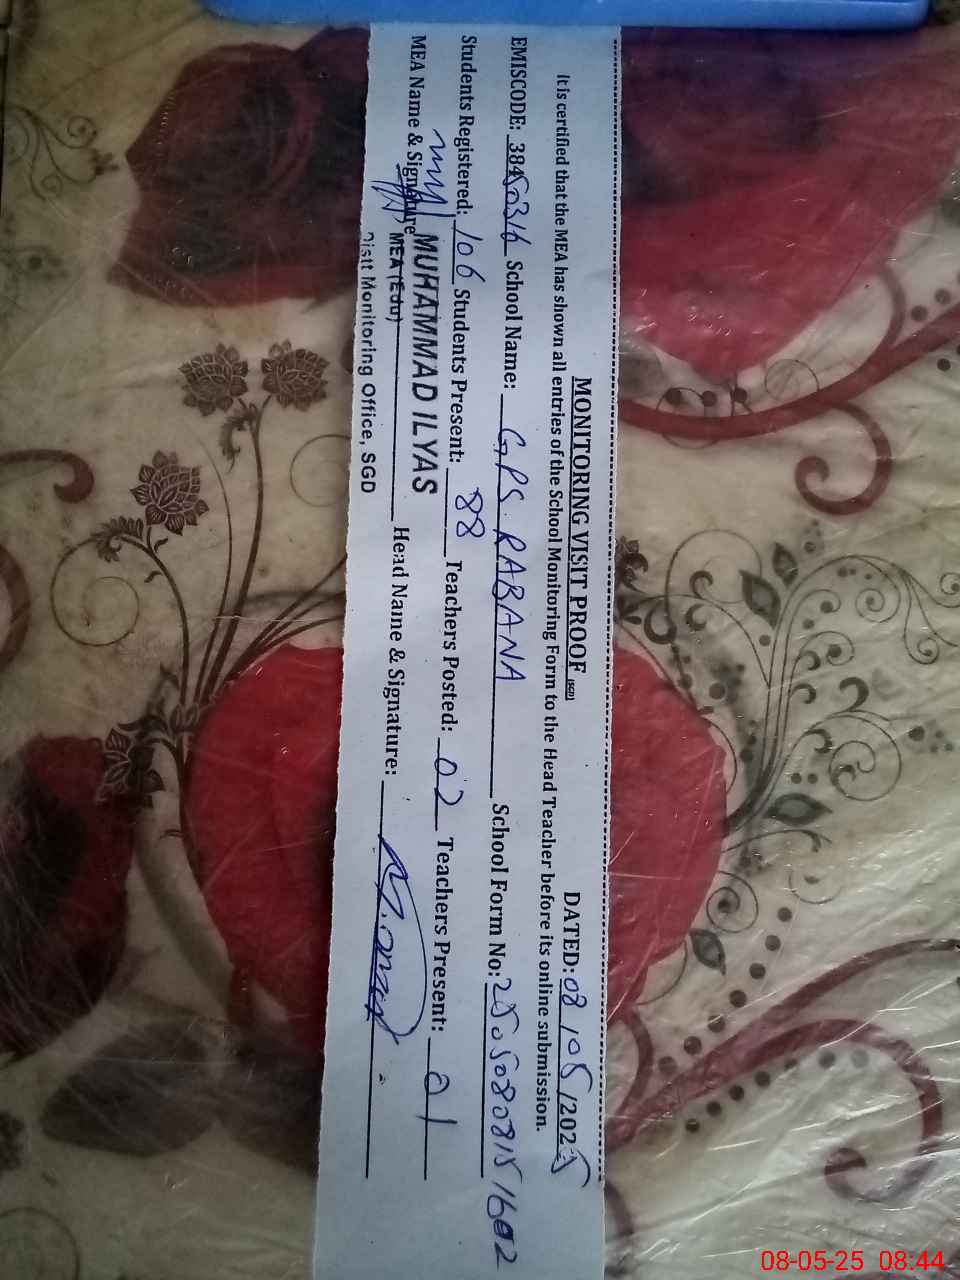 MONITORING VISIT PROOF (SGD) DATED: 08/05/2025
It is certified that the MEA has shown all entries of the School Monitoring Form to the Head Teacher before its online submission.
EMISCODE: 38450316 School Name: GPS. RABANA School Form No: 25050808151602
Students Registered: 106 Students Present: 88 Teachers Posted: 02 Teachers Present: 01
MEA Name & Signature MUHAMMAD ILYAS Head Name & Signature:
MEA (Edu)
Distt Monitoring Office, SGD
08-05-25 08:44